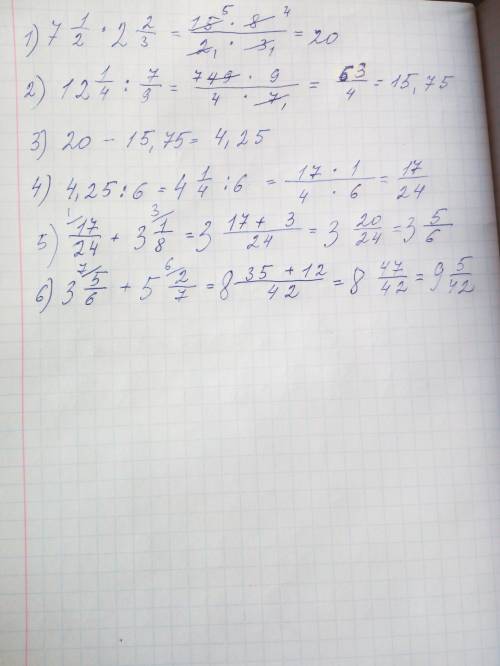 1) 7 1/2 · 2 2/3 = 15⁵ · 8⁴ / 2₁ · 3₁ = 20
2) 12 1/4 : 7/9 = ⁷49 · 9 / 4 · 7₁ = 63/4 = 15,75
3) 20 - 15,75 = 4,25
4) 4,25 : 6 = 4 1/4 : 6 = 17 · 1 / 4 · 6 = 17/24
5) ¹⁄17/24 + 3 ³⁄1/8 = 3 17 + 3 / 24 = 3 20/24 = 3 5/6
6) 3 ⁷⁄5/6 + 5 ⁶⁄2/7 = 8 35 + 12 / 42 = 8 47/42 = 9 5/42